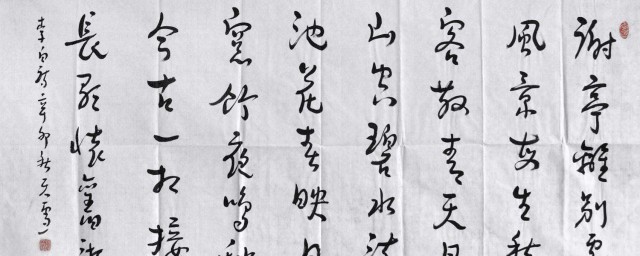 謝亭離別處
風景每生愁
客散青天月
山空碧水流
池花春映日
窗竹夜鳴秋
今古一相接
長歌懷舊遊
李白詩辛卯秋